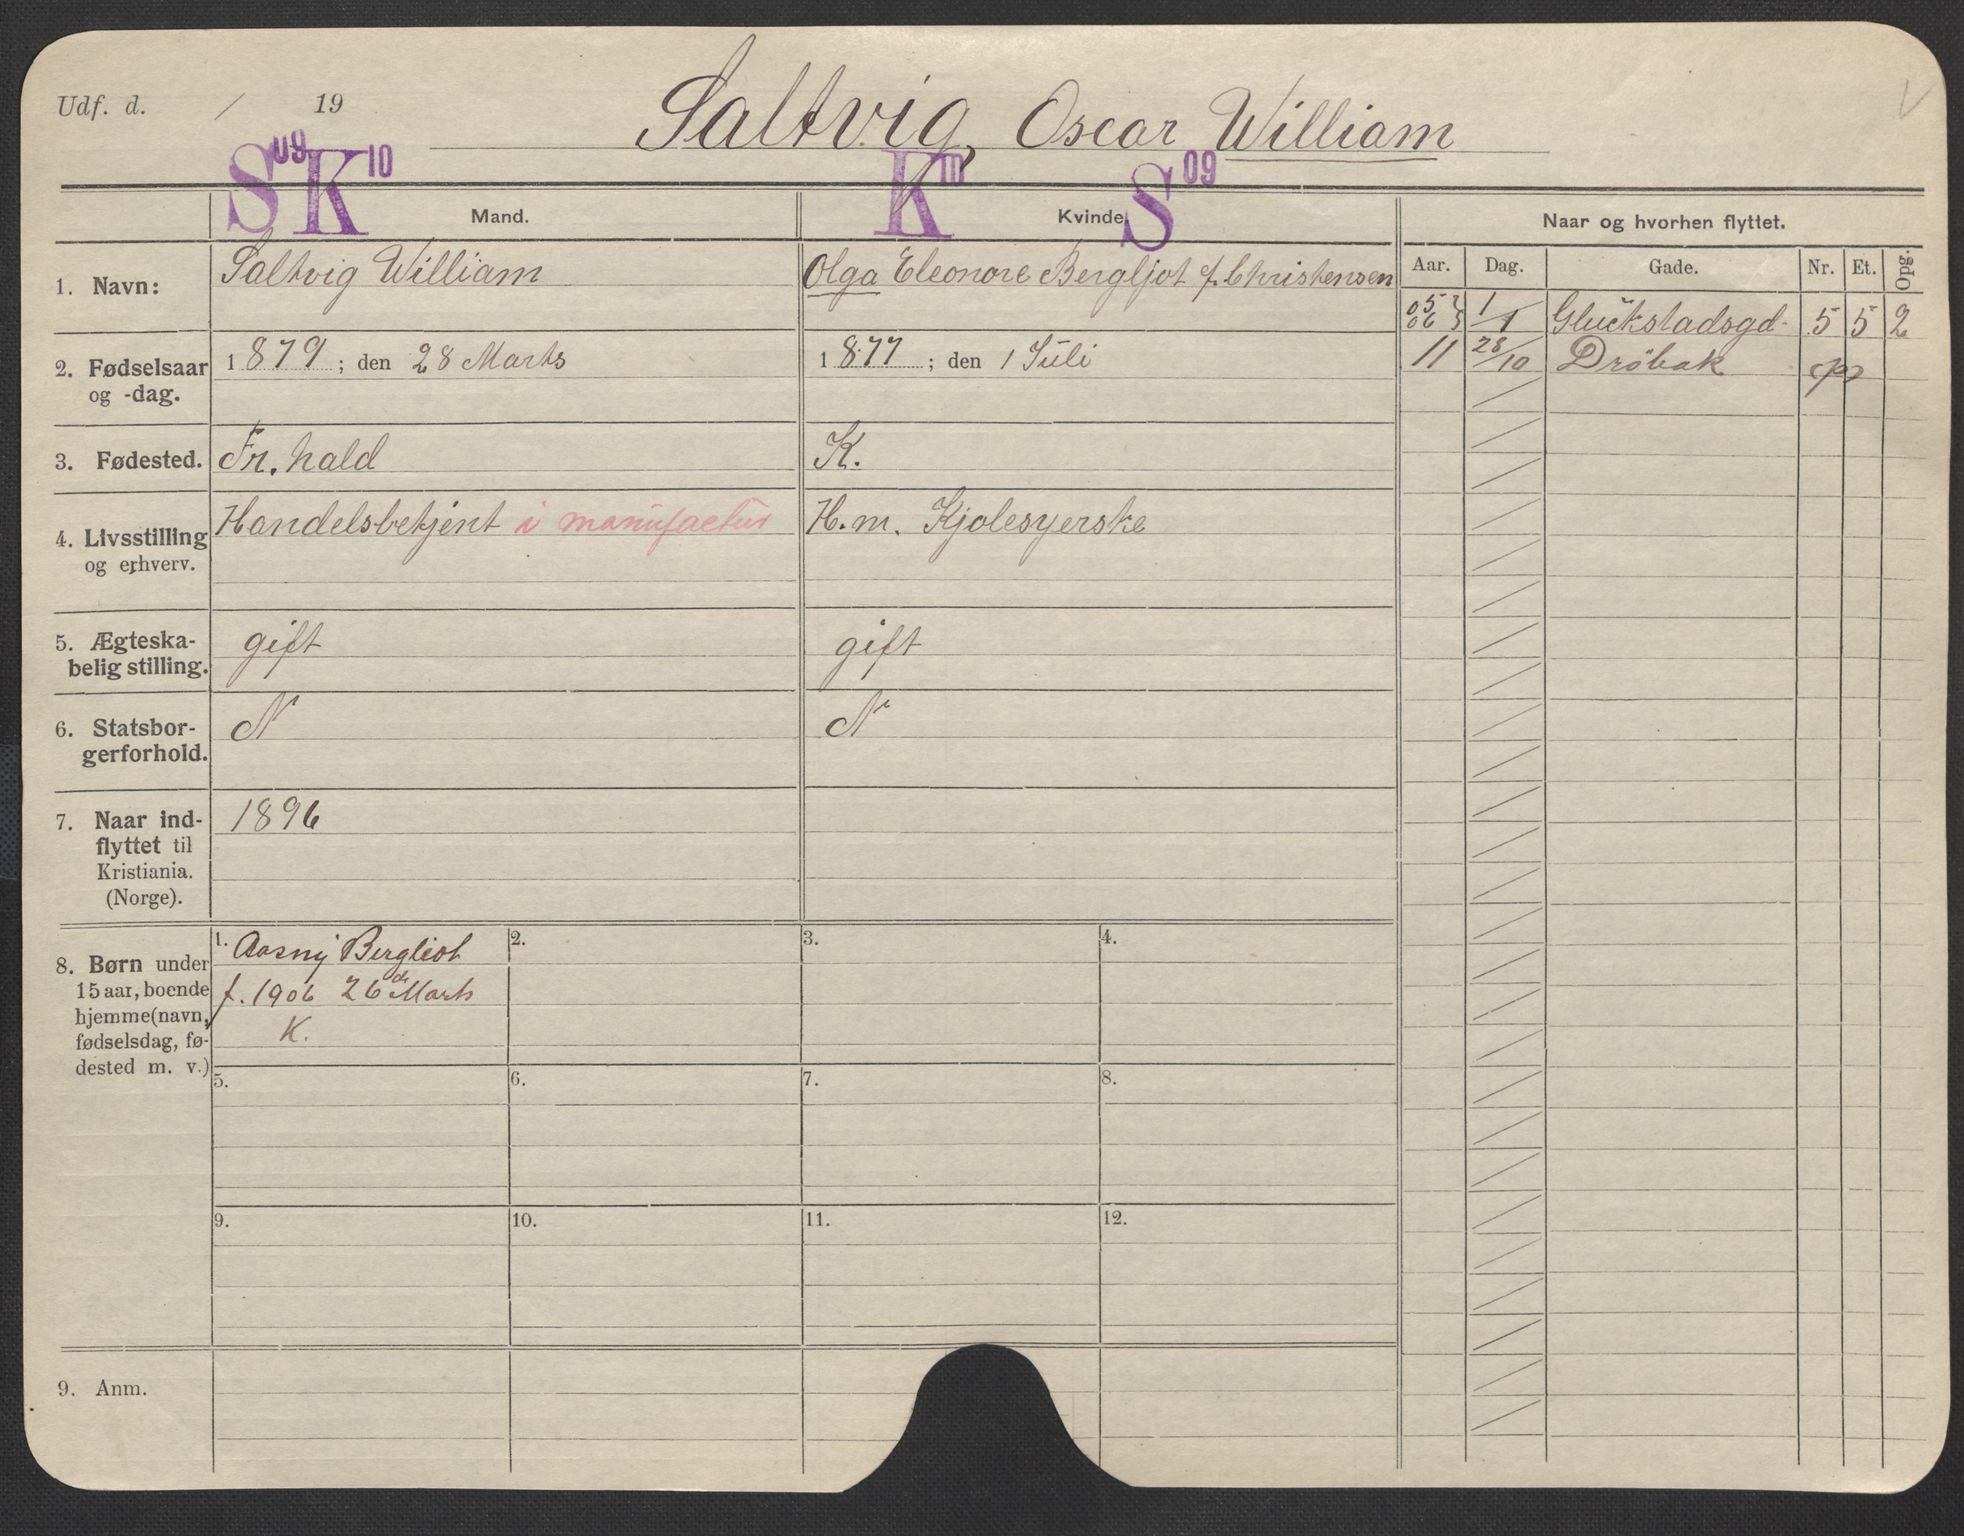 Udf. d. / 19
Saltvig, Oscar William
S 09 K 10
K m S 09
Mand.
Kvinde.
Naar og hvorhen flyttet.
Aar. Dag. Gade. Nr. Et. Opg.
1. Navn: Saltvig William
Olga Eleonore Bergljot f. Christensen
05 } 1/1 Gluckstadsgd. 5 5 2
06 }
11 28/10 Drøbak
2. Fødselsaar
og -dag.
1879; den 28 Marts
1877; den 1 Juli
3. Fødested. Fr. hald
K.
4. Livsstilling
og erhverv.
Handelsbetjent i manufactur
H.m. Kjolesyerske
5. Ægteska-
belig stilling.
gift
gift
6. Statsbor-
gerforhold.
N
N
7. Naar ind-
flyttet til
Kristiania.
(Norge).
1896
8. Børn under
15 aar, boende
hjemme (navn,
fødselsdag, fø-
dested m. v.)
1. Aasny Bergliot
f. 1906 26de Marts
K.
2.
3.
4.
5.
6.
7.
8.
9.
10.
11.
12.
9. Anm.